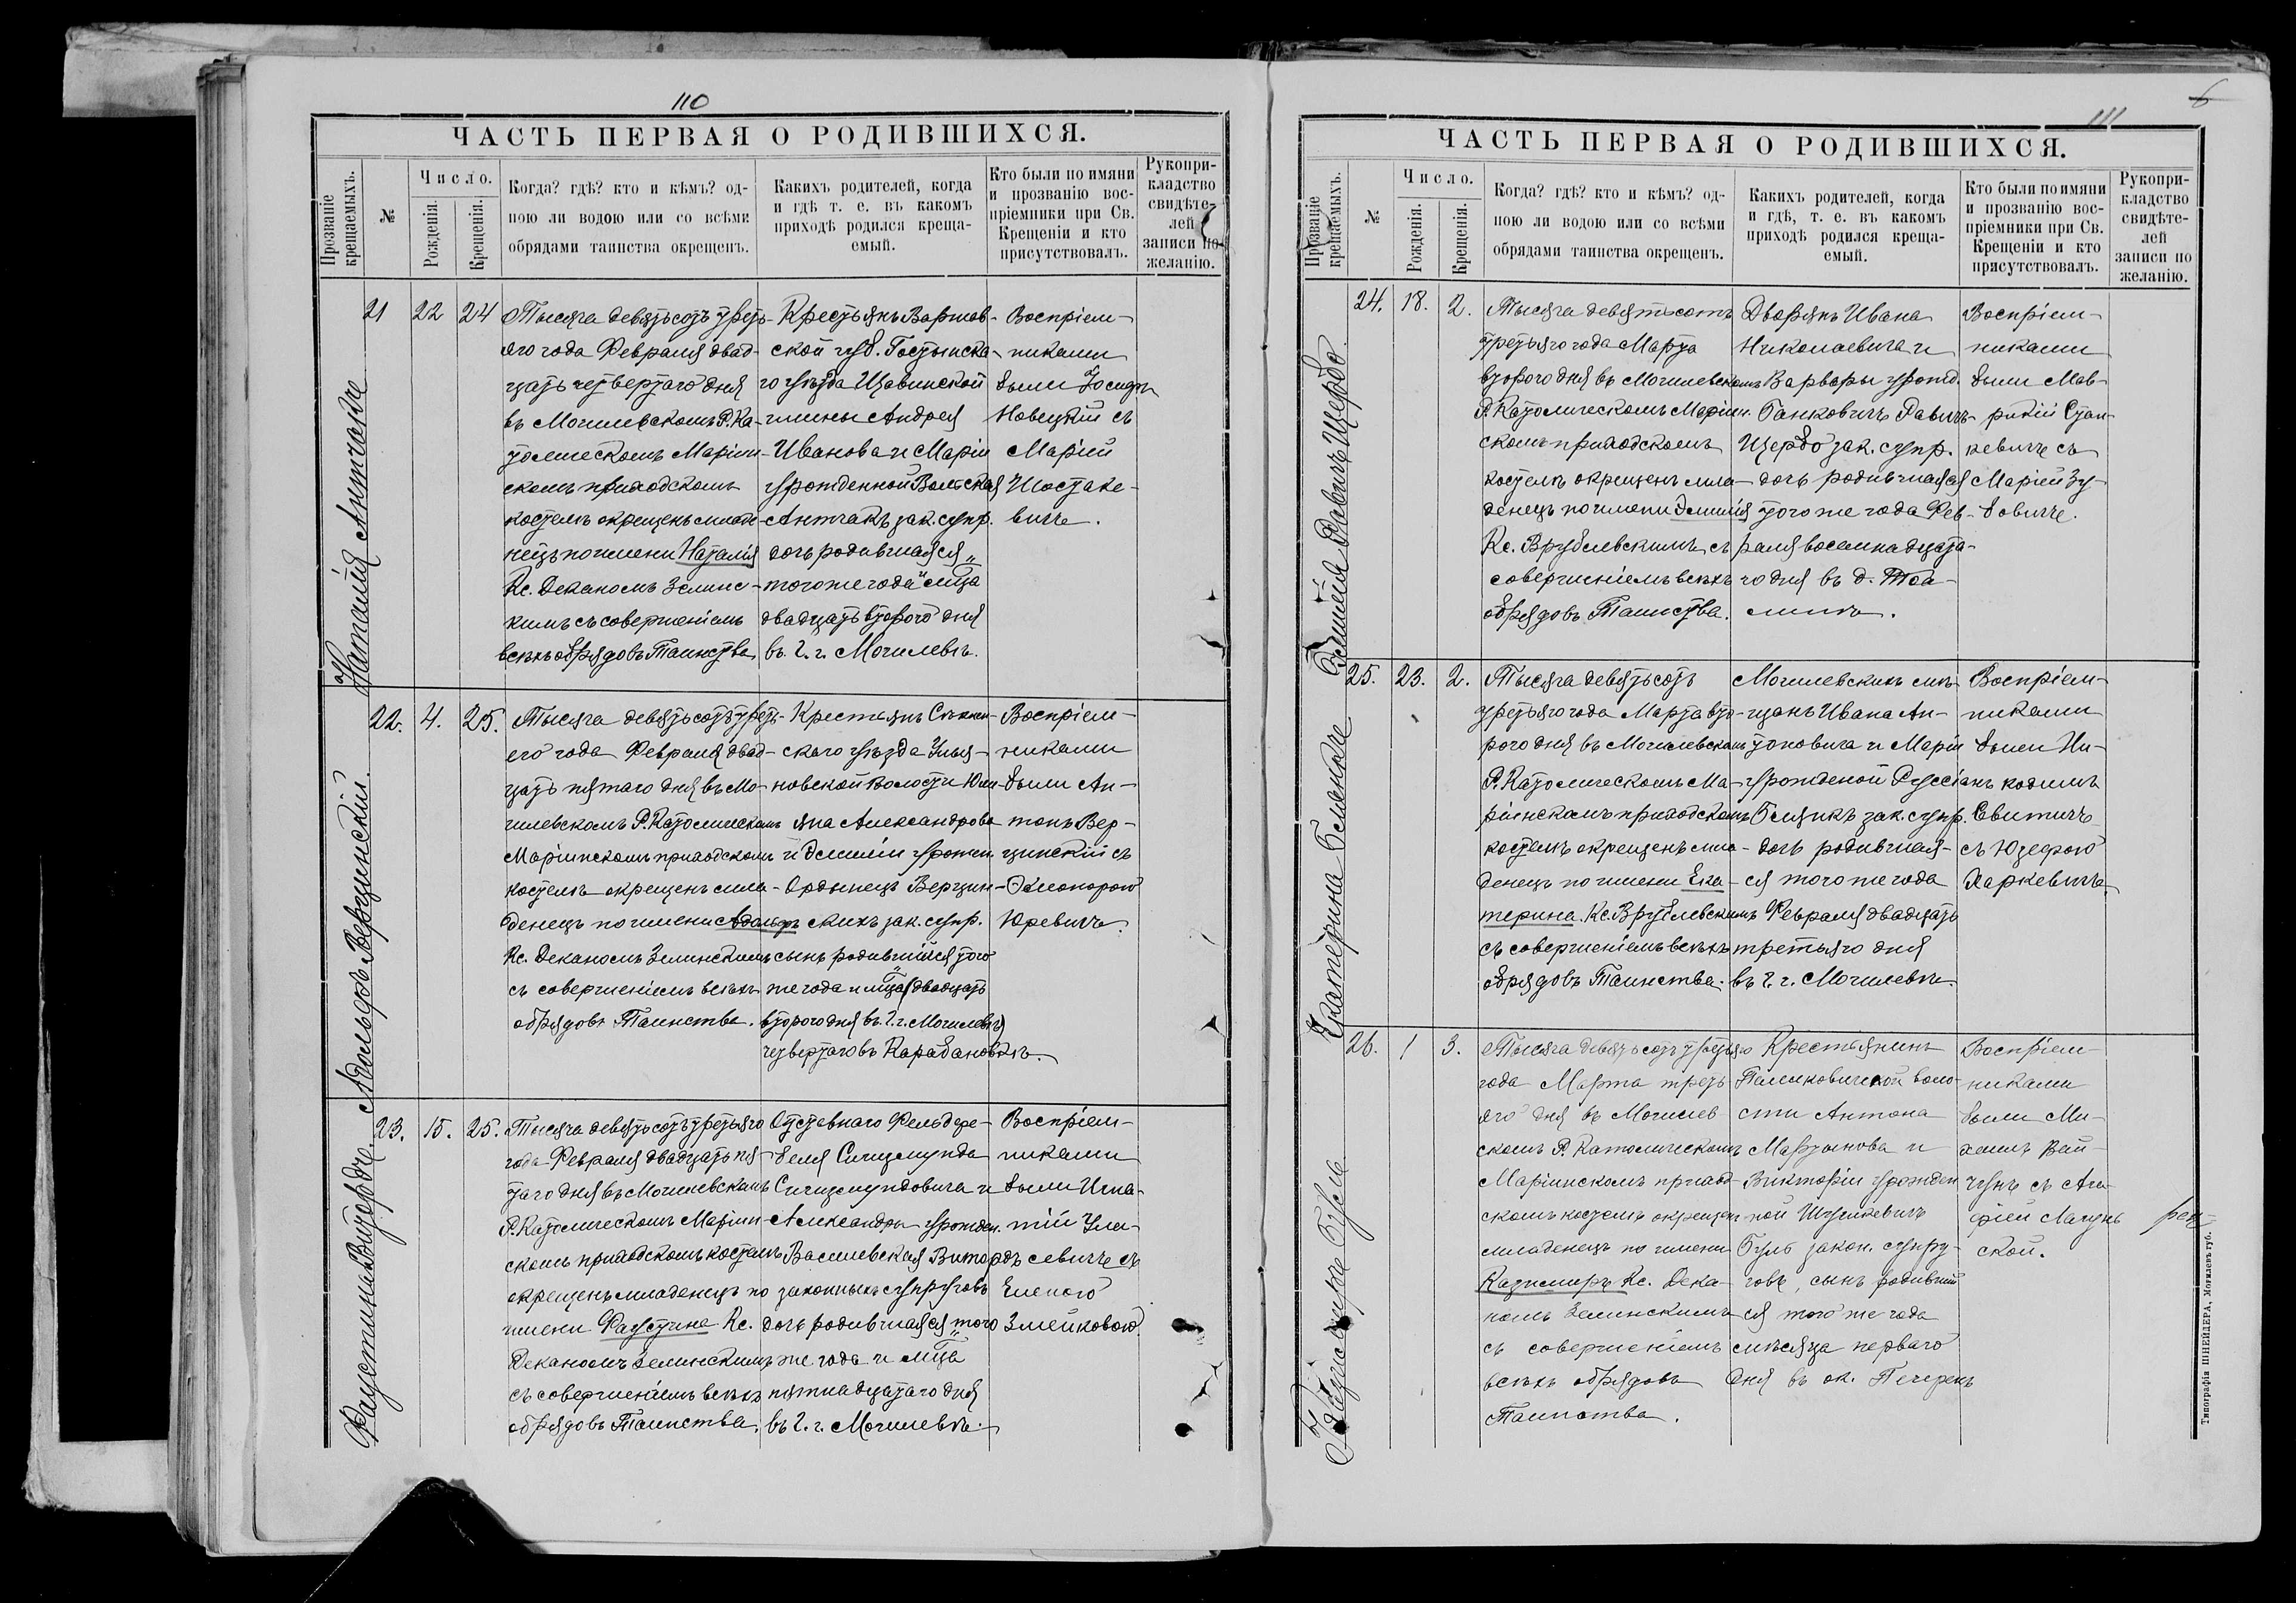 110
ЧАСТЬ ПЕРВАЯ О РОДИВШИХСЯ.
Прозваніе крещаемыхъ.
№
Число.
Рожденія.
Крещенія.
Когда? гдѣ? кто и кѣмъ? од-
ною ли водою или со всѣми
обрядами таинства окрещенъ.
Какихъ родителей, когда
и гдѣ т. е. въ какомъ
приходѣ родился креща-
емый.
Кто были по имяни
и прозванію вос-
пріемники при Св.
Крещеніи и кто
присутствовалъ.
Рукопри-
кладство
свидѣте-
лей
записи по
желанію.
Наталія Антчакъ
21 22 24
Тысяча девятьсотъ треть-
яго года Февраля двад-
цать четвертаго дня
въ Могилевскомъ Р. Ка-
толическомъ Маріин-
скомъ приходскомъ
костелѣ окрещенъ младе-
нецъ по имени Наталія
Кс. Деканомъ Зелинс-
кимъ съ совершеніемъ
всѣхъ обрядовъ Таинства
Крестьянъ Варшав-
ской губ. Гостынска-
го уѣзда Щавинской
гмины Андрея
Иванова и Маріи
урожденной Вольская
Антчакъ зак. супр.
дочь родившаяся
того же года и м-ца
двадцать второго дня
въ г. г. Могилевѣ.
Воспріем-
никами
были Іосифъ
Новецкій съ
Маріей
Шостаке-
вичъ.
Адольфъ Верцинскій
22. 4. 25.
Тысяча девятьсотъ треть-
его года Февраля двад-
цать пятаго дня въ Мо-
гилевскомъ Р. Католическомъ
Маріинскомъ приходскомъ
костелѣ окрещенъ мла-
денецъ по имени Адольфъ
Кс. Деканомъ Зелинскимъ
съ совершеніемъ всѣхъ
обрядовъ Таинства.
Крестьянъ Сѣннен-
скаго уѣзда Улья-
новской волости Юли-
яна Александрова
и Эмиліи урожен.
Ордынецъ Верцин-
скихъ зак. супр.
сынъ родившійся того
же года и м-ца двадцать
второго дня въ г. г. Могилевѣ
четвертаго въ Карабановкѣ.
Воспріем-
никами
были Ан-
тонъ Вер-
цинскій съ
Элеонорою
Юревичъ.
Фаустина Витордъ
23. 15. 25.
Тысяча девятьсотъ третьяго
года Февраля двадцать пя-
таго дня въ Могилевскомъ
Р. Католическомъ Маріин-
скомъ приходскомъ костелѣ
окрещенъ младенецъ по
имени Фаустина Кс.
Деканомъ Зелинскимъ
съ совершеніемъ всѣхъ
обрядовъ Таинства.
Отставнаго Фельдфе-
беля Сигизмунда
Сигизмундовича и
Александры урожден.
Василевская Витордъ
законныхъ супруговъ
дочь родившаяся того
же года и м-ца
пятнадцатаго дня
въ г. г. Могилевѣ.
Воспріем-
никами
были Игна-
тій Ули-
севичъ съ
Еленою
Змейковою.
6
111
ЧАСТЬ ПЕРВАЯ О РОДИВШИХСЯ.
Прозваніе крещаемыхъ.
№
Число.
Рожденія.
Крещенія.
Когда? гдѣ? кто и кѣмъ? од-
ною ли водою или со всѣми
обрядами таинства окрещенъ.
Какихъ родителей, когда
и гдѣ, т. е. въ какомъ
приходѣ родился креща-
емый.
Кто были по имяни
и прозванію вос-
пріемники при Св.
Крещеніи и кто
присутствовалъ.
Рукопри-
кладство
свидѣте-
лей
записи по
желанію.
Эмилія Равичъ Щербо
24. 18. 2.
Тысяча девятьсотъ
третьяго года Марта
второго дня въ Могилевскомъ
Р. Католическомъ Маріин-
скомъ приходскомъ
костелѣ окрещенъ мла-
денецъ по имени Эмилія
Кс. Врублевскимъ съ
совершеніемъ всѣхъ
обрядовъ Таинства.
Дворянъ Ивана
Николаевича и
Варвары урожд.
Ганковичъ Равичъ-
Щербо зак. супр.
дочь родившаяся
того же года Фев-
раля восемнадцата-
го дня въ д. Тоа-
Воспріем-
никами
были Мав-
рикій Стан-
кевичъ съ
Маріей Зу-
бовичъ.
Екатерина Бѣляцкъ
25. 23. 2.
Тысяча девятьсотъ
третьяго года Марта вто-
рого дня въ Могилевскомъ
Р. Католическомъ Ма-
ріинскомъ приходскомъ
костелѣ окрещенъ мла-
денецъ по имени Ека-
терина. Кс. Врублевскимъ
съ совершеніемъ всѣхъ
обрядовъ Таинства.
Могилевскихъ мѣ-
щанъ Ивана Ан-
тоновича и Маріи
урожденой Руссіанъ
зак. супр.
дочь родившая-
ся того же года
Февраля двадцать
третьяго дня
въ г. г. Могилевѣ.
Воспріем-
никами
были Ни-
кодимъ
Свитичъ
съ Юзефою
Харкевичъ.
Казиміръ Буль
26. 1 3.
Тысяча девятьсотъ третьяго
года Марта треть-
яго дня въ Могилев-
скомъ Р. Католическомъ
Маріинскомъ приход-
скомъ костелѣ окрещенъ
младенецъ по имени
Казимиръ Кс. Дека-
номъ Зелинскимъ
съ совершеніемъ
всѣхъ обрядовъ
Таинства.
Крестьянинъ
Пашковичской воло-
сти Антона
Мартынова и
Викторіи урожден
ной Шушкевичъ
Буль закон. супру-
говъ, сынъ родивший
ся того же года
мѣсяца перваго
дня въ ок. Печерскъ
Воспріем-
никами
были Ми-
хаилъ Вай-
чунъ съ Ага-
фіей Лагунъ
ской.
Типографія ШНЕЙДЕРА, Могилевъ губ.